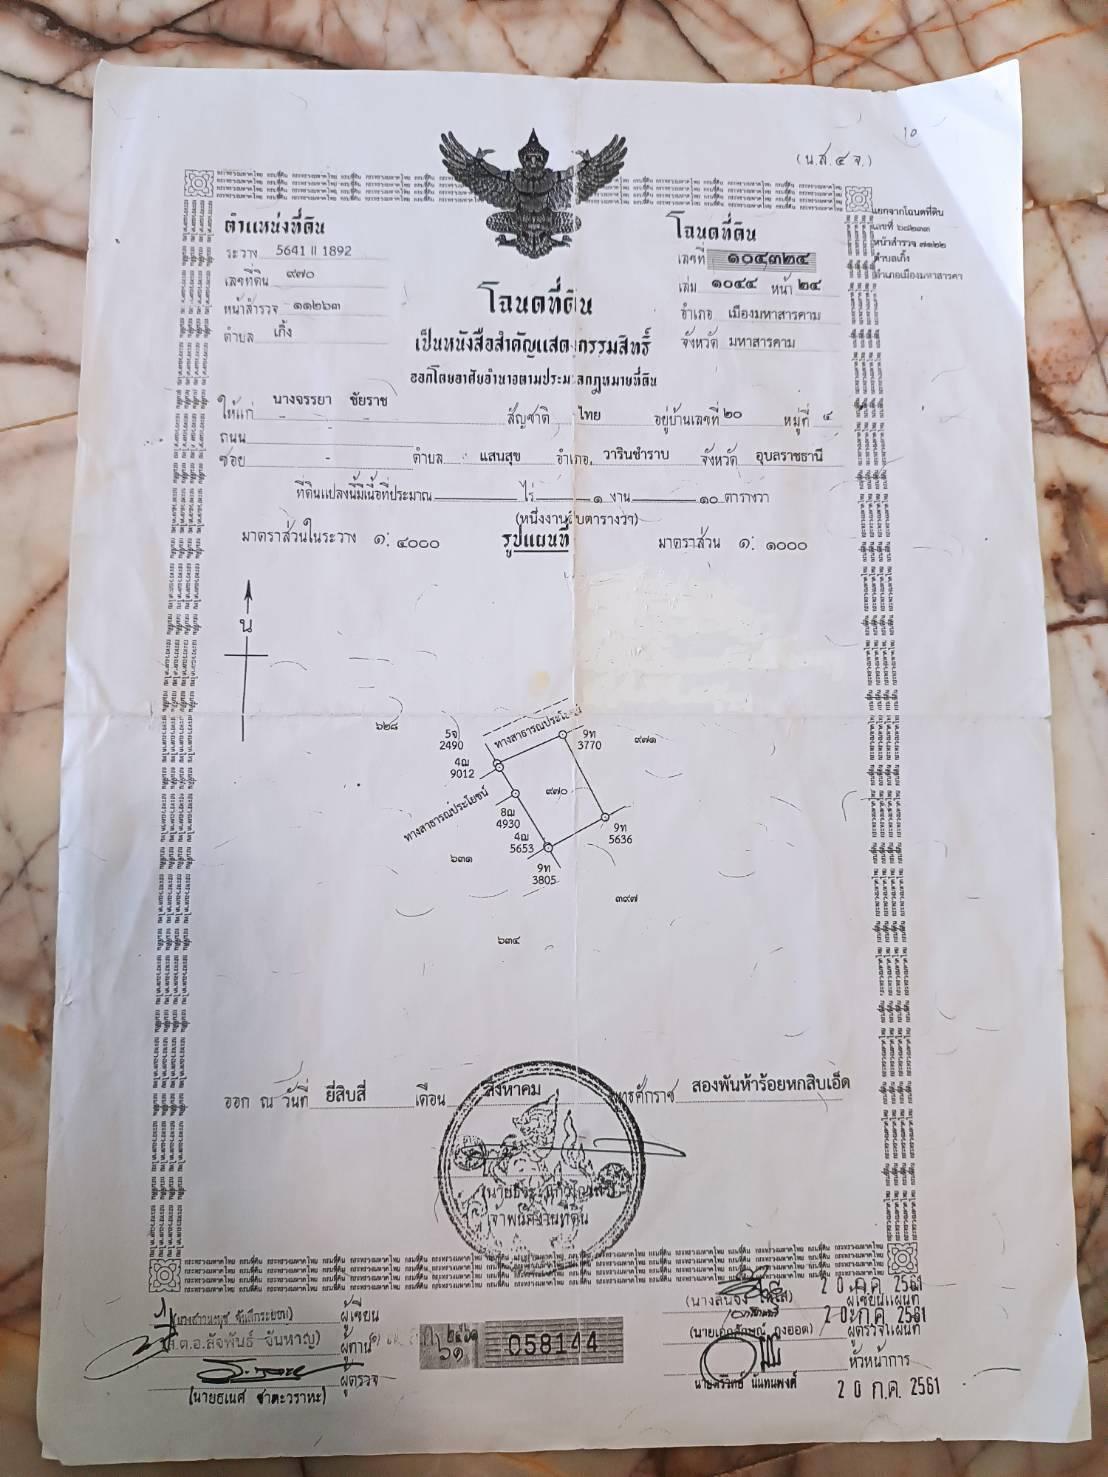 ๑๐
(น.ส.๔ จ.)
ตำแหน่งที่ดิน
ระวาง 5641 II 1892
เลขที่ดิน ๙๗๐
หน้าสำรวจ ๑๑๒๖๓
ตำบล เกิ้ง
โฉนดที่ดิน
เลขที่ ๑๐๔๓๒๔
เล่ม ๑๐๔๔ หน้า ๒๔
อำเภอ เมืองมหาสารคาม
จังหวัด มหาสารคาม
แยกจากโฉนดที่ดิน
เลขที่ ๖๘๒๓๓
หน้าสำรวจ ๗๑๒๒
ตำบลเกิ้ง
อำเภอเมืองมหาสารคา
โฉนดที่ดิน
เป็นหนังสือสำคัญแสดงกรรมสิทธิ์
ออกโดยอาศัยอำนาจตามประมวลกฎหมายที่ดิน
ให้แก่ นางจรรยา ชัยราช สัญชาติ ไทย อยู่บ้านเลขที่ ๒๐ หมู่ที่ ๔
ถนน -
ซอย - ตำบล แสนสุข อำเภอ วารินชำราบ จังหวัด อุบลราชธานี
ที่ดินแปลงนี้มีเนื้อที่ประมาณ ไร่ ๑ งาน ๑๐ ตารางวา
(หนึ่งงานสิบตารางวา)
มาตราส่วนในระวาง ๑: ๔๐๐๐ รูปแผนที่ มาตราส่วน ๑: ๑๐๐๐
น
๖๒๘
5จ
2490
ทางสาธารณประโยชน์
9ท
3770
๙๗๑
4ฌ
9012
๙๗๐
ทางสาธารณประโยชน์
8ฌ
4930
4ฌ
5653
9ท
5636
๖๓๑
9ท
3805
๓๙๗
๖๓๔
ออก ณ วันที่ ยี่สิบสี่ เดือน สิงหาคม พุทธศักราช สองพันห้าร้อยหกสิบเอ็ด
เจ้าพนักงานที่ดิน
ผู้เขียน
(ส.ต.อ.สัจพันธ์ จันหาญ) ผู้ทาน
ผู้ตรวจ
(นายธเนศ ชาตะวราหะ)
058144
20 ก.ค. 2561
ผู้เขียนแผนที่
20 ก.ค. 2561
ผู้ตรวจแผนที่
หัวหน้าการ
20 ก.ค. 2561